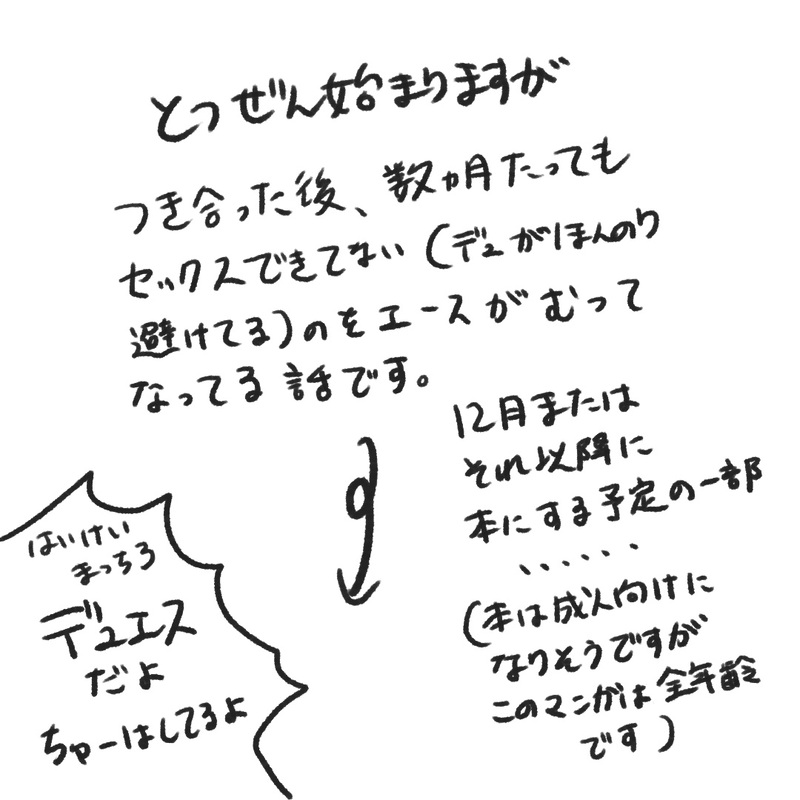 とつぜん始まりますが
つき合った後、数ヵ月たっても
セックスできてない(デュがほんのり
避けてる)のをエースがむって
なってる話です。
12月または
それ以降に
本にする予定の一部
・・・・・・
(本は成人向けに
なりそうですが
このマンガは全年齢
です)
はいけい
まっちろ
デュエス
だよ
ちゅーはしてるよ